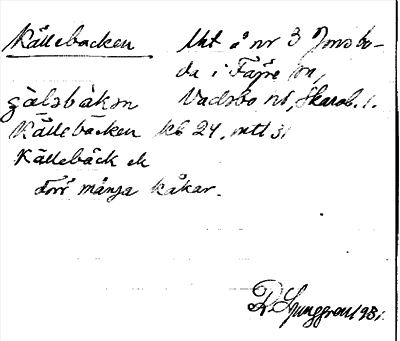 Källebacken Ukt å nr 3 Jonsbo-
da i Fägre sn,
Vadsbo hd, Skarab. l.
Källebacken kb 24, mtl 31
Källebäck ek
Förr många kåkar.
R. Ljunggren 1981